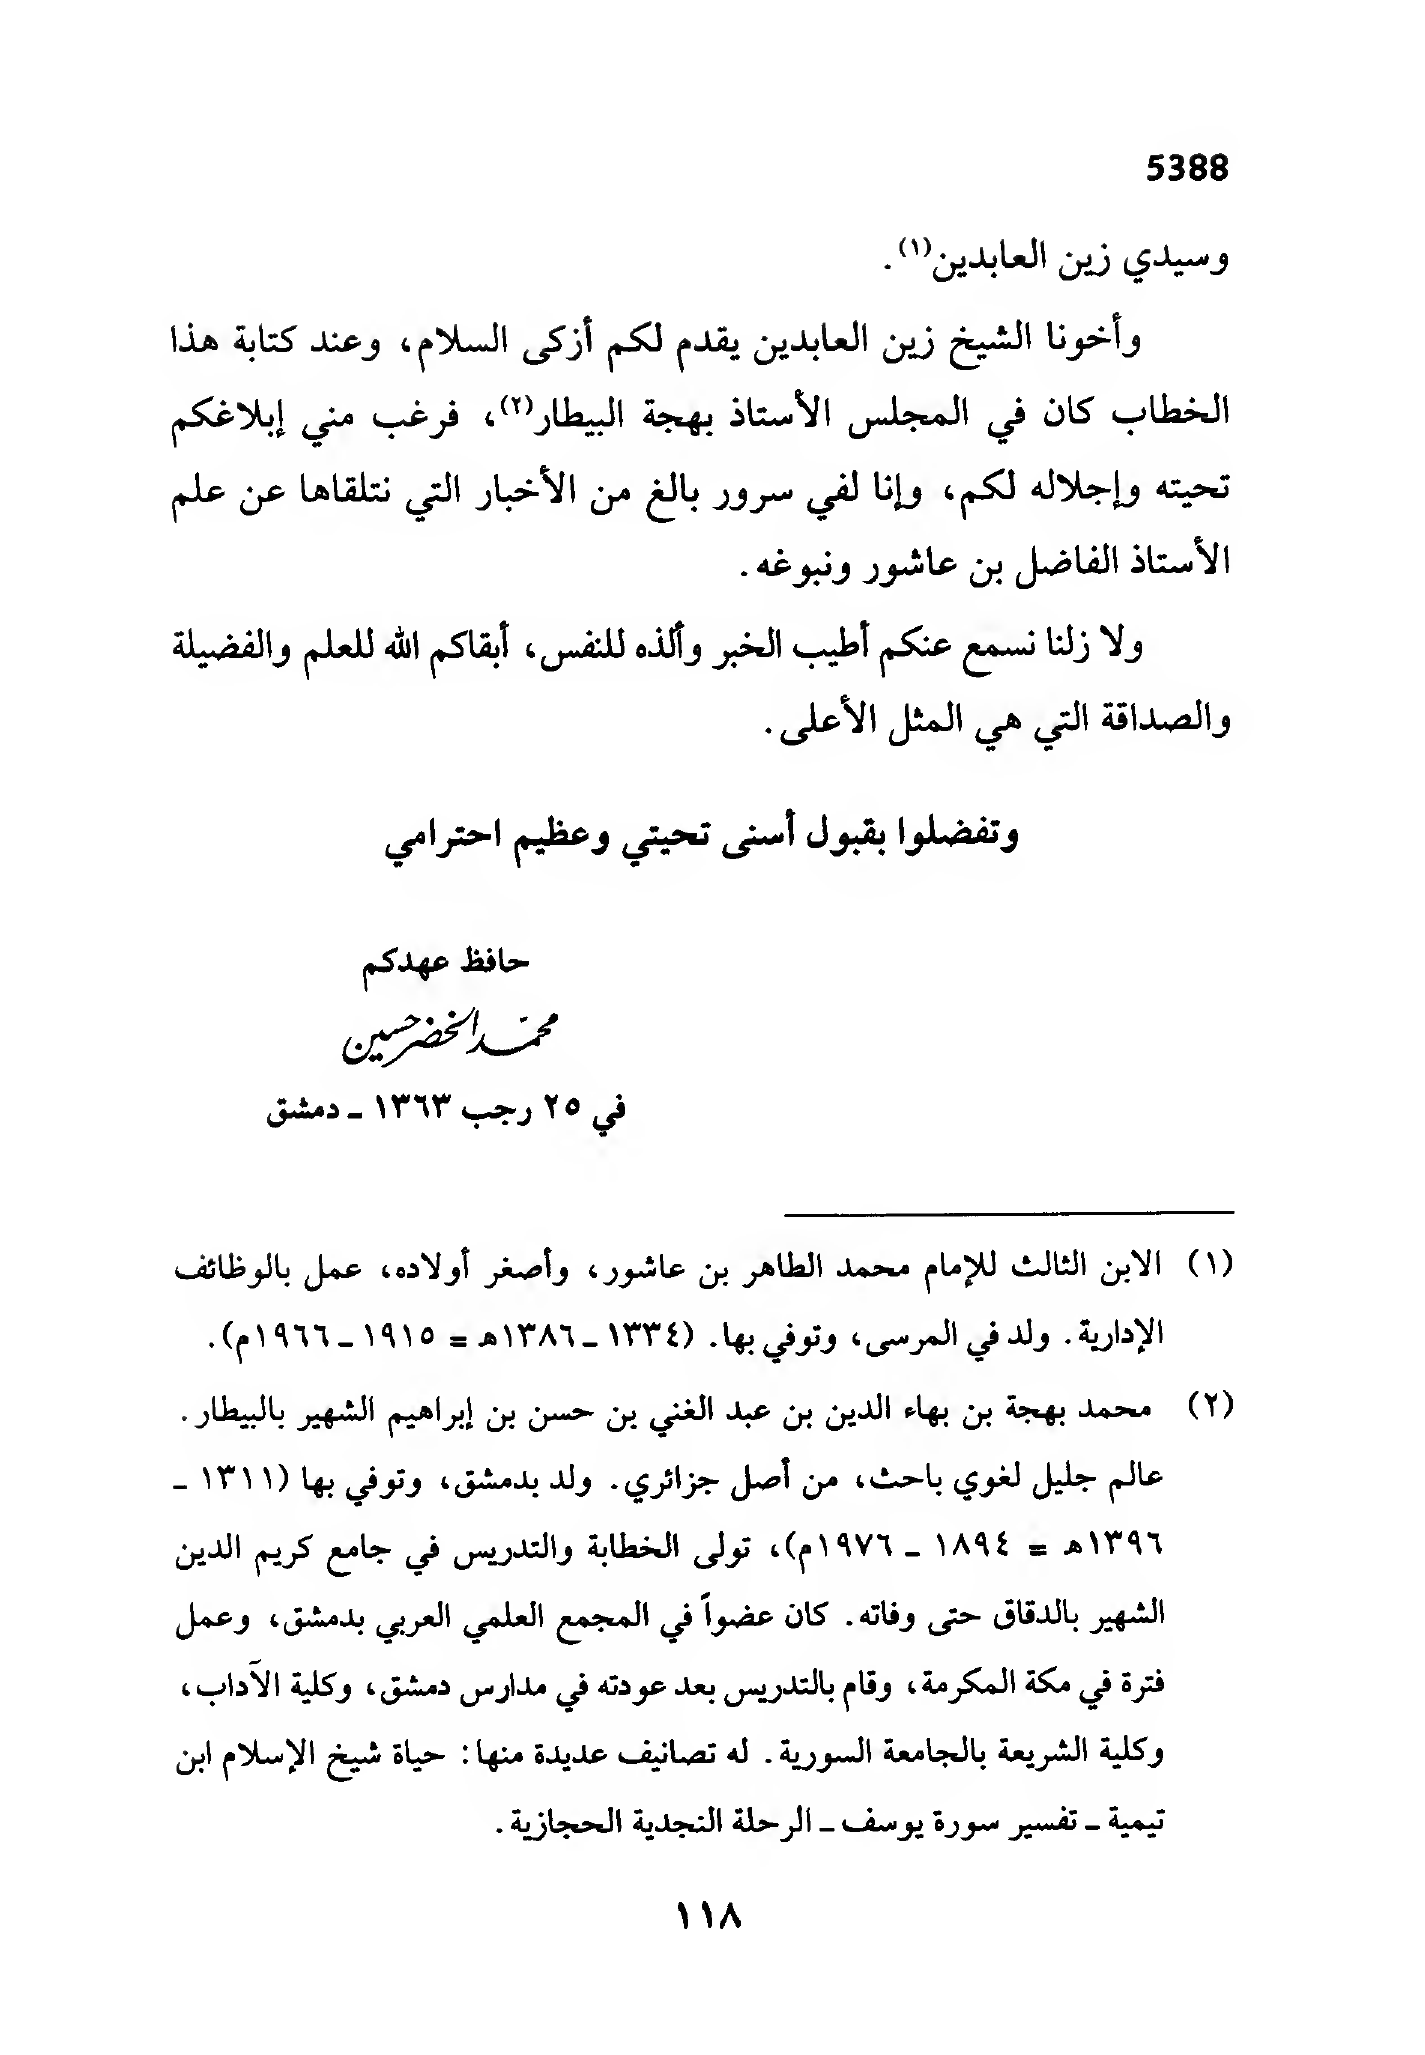 5388
وسيدي زين العابدين(١).
وأخونا الشيخ زين العابدين يقدم لكم أزكى السلام، وعند كتابة هذا
الخطاب كان في المجلس الأستاذ بهجة البيطار(٢)، فرغب مني إبلاغكم
تحيته وإجلاله لكم، وإنا لفي سرور بالغ من الأخبار التي نتلقاها عن علم
الأستاذ الفاضل بن عاشور ونبوغه.
ولا زلنا نسمع عنكم أطيب الخبر وألذه للنفس، أبقاكم الله للعلم والفضيلة
والصداقة التي هي المثل الأعلى.
وتفضلوا بقبول أسنى تحيتي وعظيم احترامي
حافظ عهدكم
محمد الخضر حسين
في ٢٥ رجب ١٣٦٣ ـ دمشق
(١) الابن الثالث للإمام محمد الطاهر بن عاشور، وأصغر أولاده، عمل بالوظائف
الإدارية. ولد في المرسى، وتوفي بها. (١٣٣٤ ـ ١٣٨٦هـ = ١٩١٥ ـ ١٩٦٦م).
(٢) محمد بهجة بن بهاء الدين بن عبد الغني بن حسن بن إبراهيم الشهير بالبيطار.
عالم جليل لغوي باحث، من أصل جزائري. ولد بدمشق، وتوفي بها (١٣١١ ـ
١٣٩٦هـ = ١٨٩٤ ـ ١٩٧٦م)، تولى الخطابة والتدريس في جامع كريم الدين
الشهير بالدقاق حتى وفاته. كان عضواً في المجمع العلمي العربي بدمشق، وعمل
فترة في مكة المكرمة، وقام بالتدريس بعد عودته في مدارس دمشق، وكلية الآداب،
وكلية الشريعة بالجامعة السورية. له تصانيف عديدة منها: حياة شيخ الإسلام ابن
تيمية ـ تفسير سورة يوسف ـ الرحلة النجدية الحجازية.
١١٨